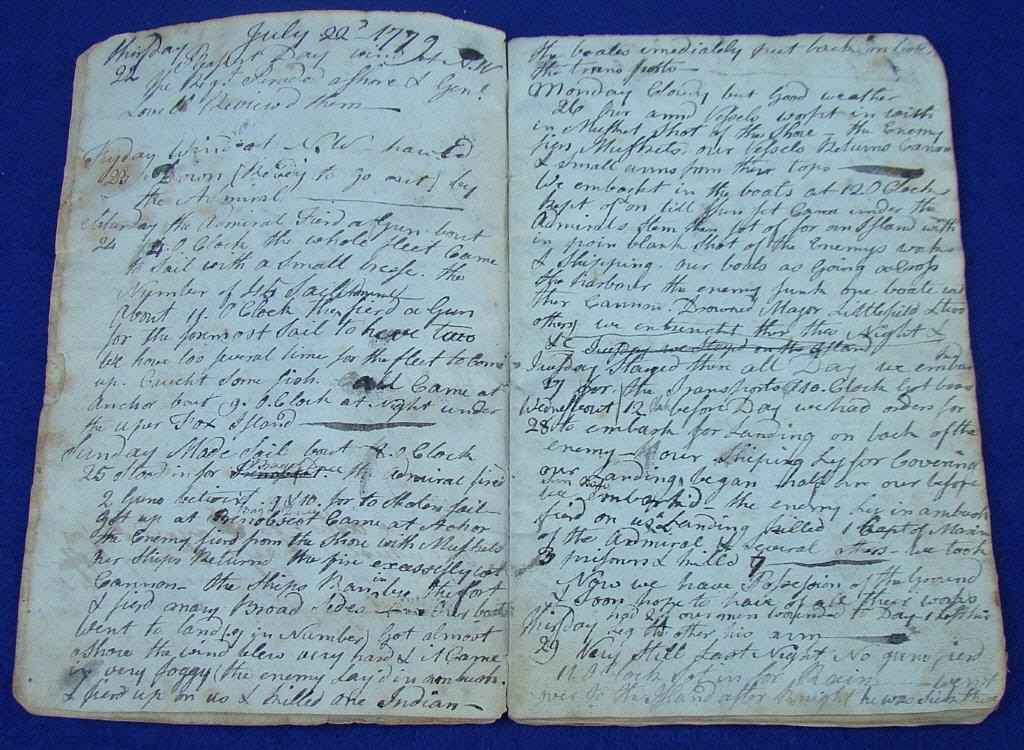 July 22d 1779
Thirsday Plesent Day wind at N.W
22 The Regt. paraded a shore & Genl.
Lovell Reviewd them
Fryday Wind at N.W hauled
23 Down (Ready to go out) by
the Admiral
Saturday the Admiral Fierd a Gun bout
24 4. O Clock the whole fleet Came
to Sail with a Small brese. the
Number of 45 Sail
About 11. O Clock they fierd a Gun
for the formost Sail to heave two
we have too several time for the fleet to Come
up. Caucht Some fish. all Came at
Anchor bout 9. O Clock at Night under
the uper Fox Island
Sunday Made Sail bout 4. O Clock
25 Stood in for the Admiral fierd
2 Guns betwixt 9 & 10. for to Sail
Got up at Penobscot Came at Achor
the Enemy fierd from the Shore with Muskets
Our Ships Returnd the fire excessively with
Cannon the Ships Ran in by the fort
& fierd many Broad Sides Our boats
went to land (9 in Number) Got almost
a Shore the wind blew very hard & it Came
in very foggy (the enemy Lay'd in ambush.
& fierd up on us & killed one Indian
the boates imediately put back on board
the transports
Monday Clowdy but Good weather
26 Our armd Vessels worpt in with
in Musket Shot of the Shore the Enemy
fiers Muskets. our Vessels Returns Canon
& Small arms from their tops
We embarket in the boats at 12 O Clock
Kept of on till Sun Set Came under the
Admirals Stern then set of for an Island with
in poin blank Shot of the Enemys works
& Shipping. our boats as Going across
the harbour the enemy sunk one boate with
ther Cannon. Drowned Major Littlefield & two
others we entrencht there this Night &
&c Tuesday we Stayed on the Island
Tuesday Stayed there all Day we embarkd
27 for the Transports 10. O Clock Got board
Wednes bout 12 before Day we had orders for
28 to embark for Landing on back of the
enemy our Shiping Ly for Covering
our Landing began half an our before
we embarked the enemy Ly in ambush
fierd on us Landing killed 1 Capt of Marin
of the Admiral & Several others we took
3 prisoners & killed 7
Now we have Possesion of the Ground
& Soon hope to have of all their works
had 24 our men wounded to Day 1 left his
leg the other his arm
Thirsday
29 Very Still Last Night No guns fierd
11. O Clock Set in for Rain we went
over to the Island after he was Sick there